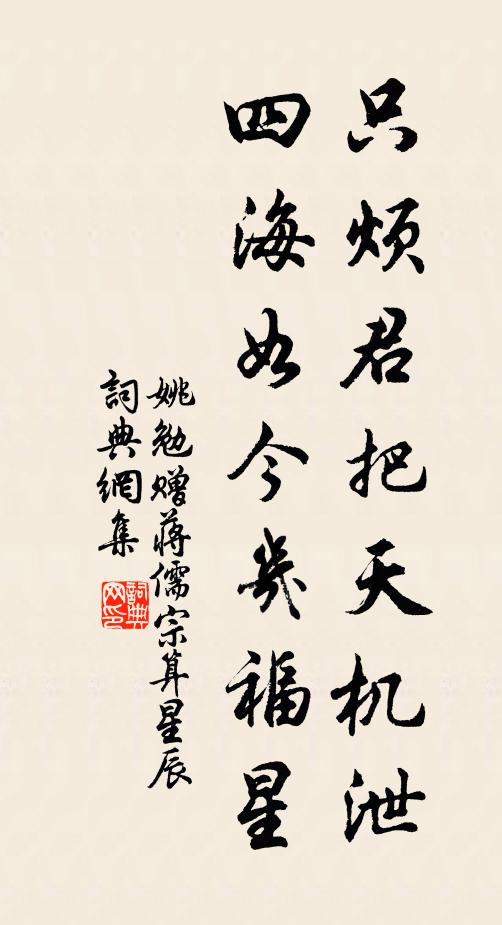 只烦君把天机泄
四海如今几福星
姚勉赠蒋儒宗算星辰
詞典網集
詞典网印